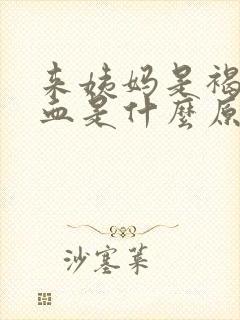 来姨妈是褐
血是什麼原
沙塞菓